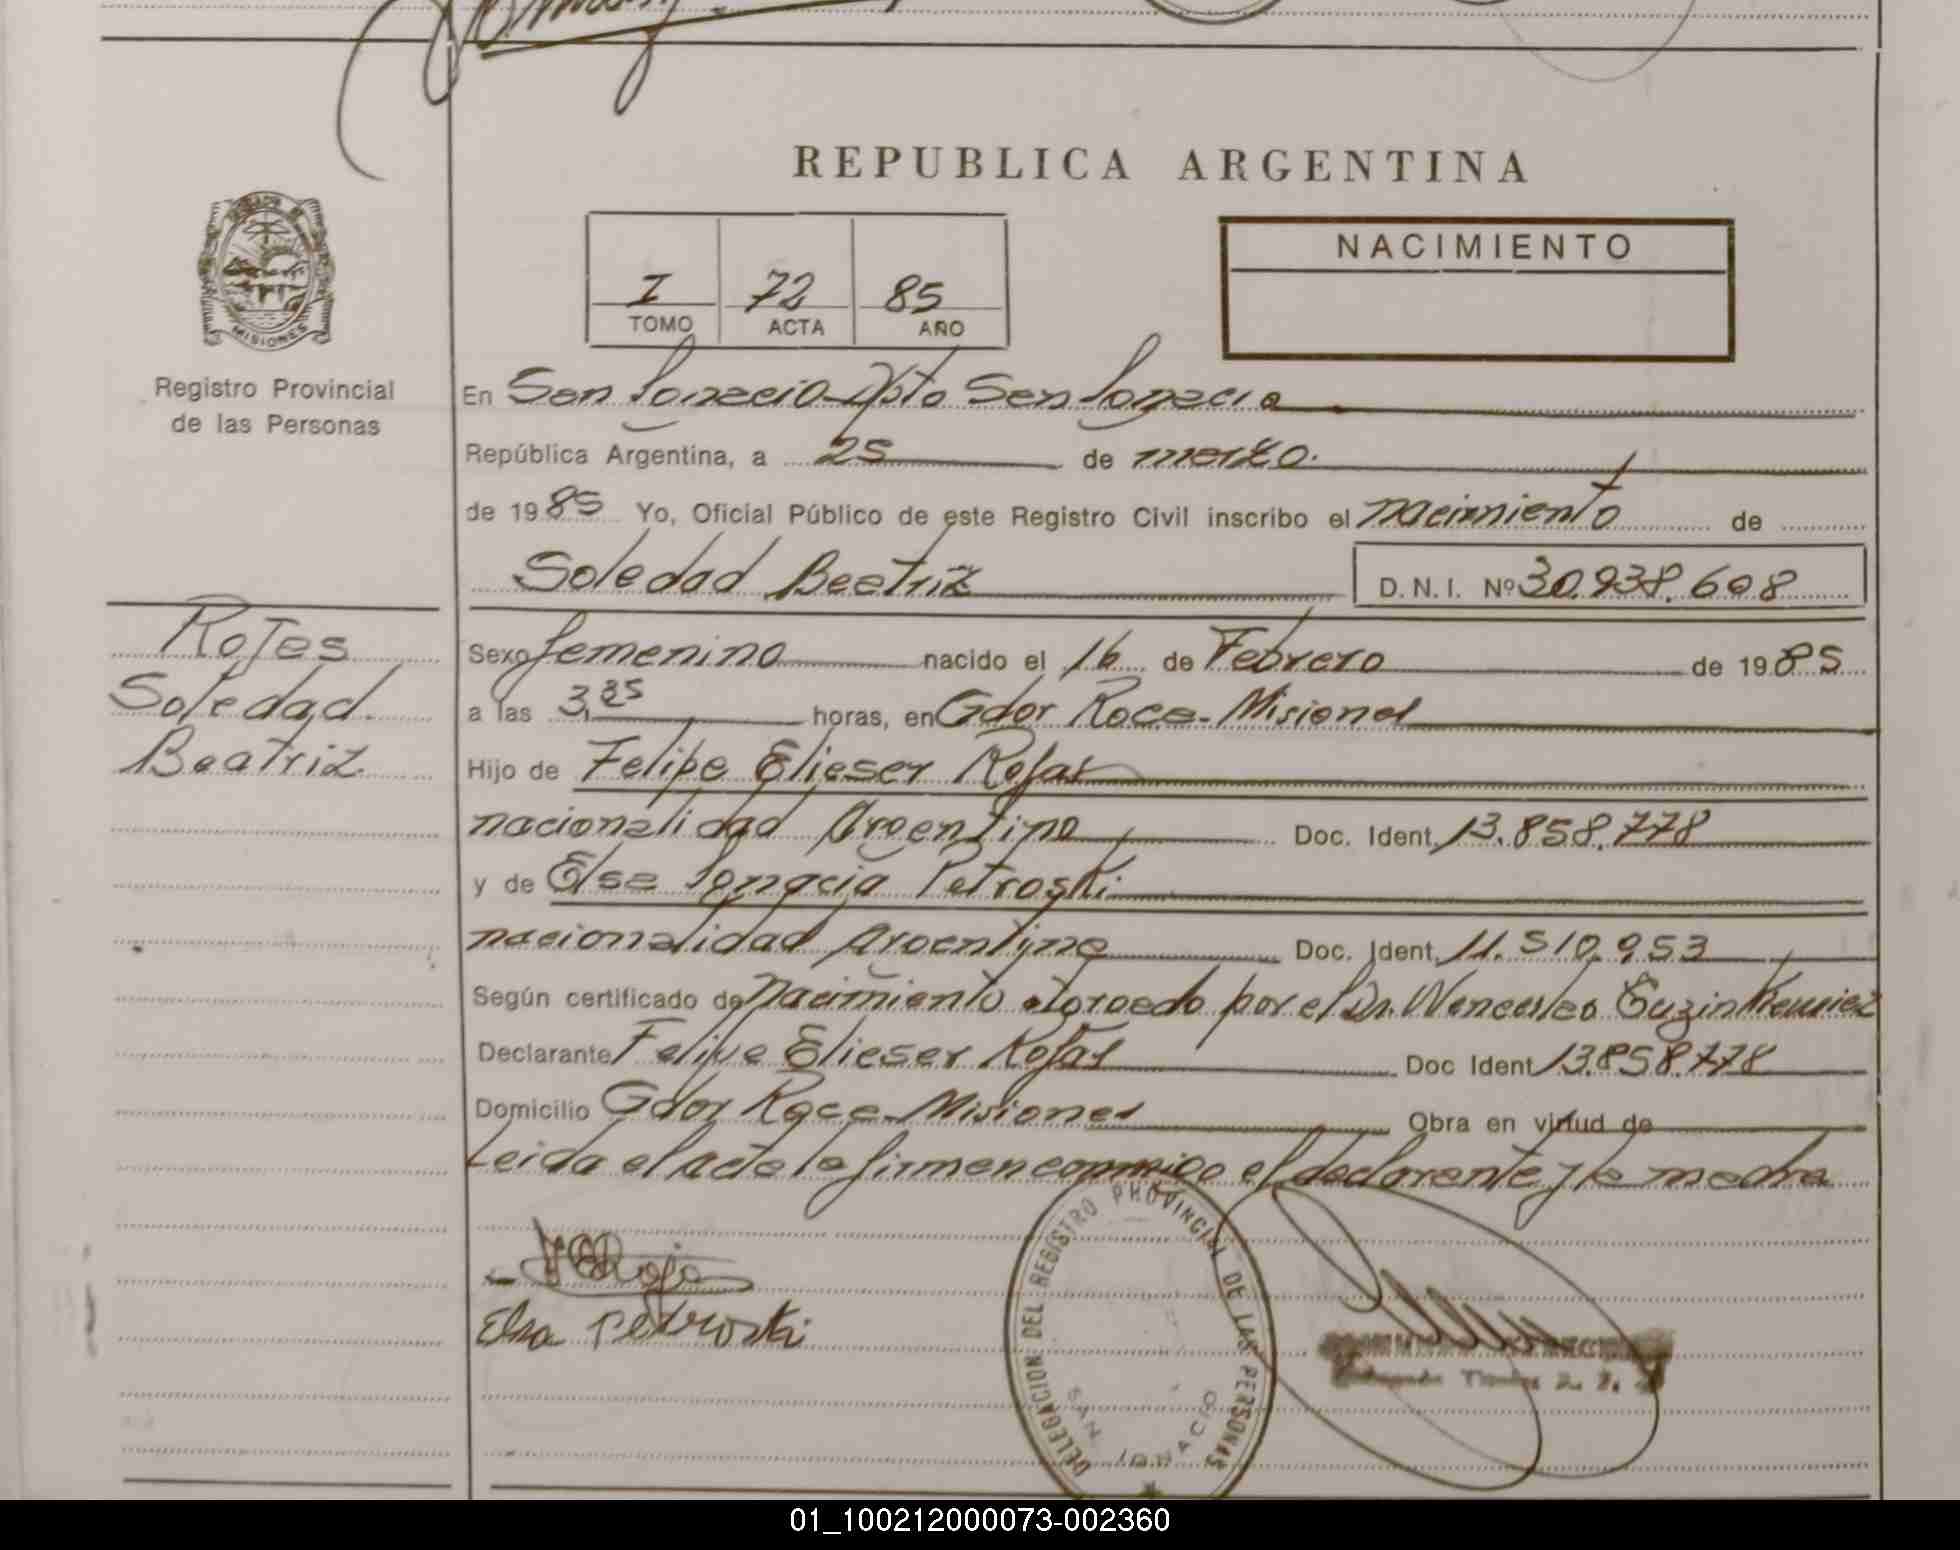 REPUBLICA ARGENTINA
NACIMIENTO
I 72 85
TOMO ACTA AÑO
MISIONES
Registro Provincial
de las Personas
En San Ignacio Dpto San Ignacio
República Argentina, a 25 de marzo.
de 1985 Yo, Oficial Público de este Registro Civil inscribo el nacimiento de
Soledad Beatriz D.N.I. Nº 30.938.608
Rojas
Soledad
Beatriz
Sexo femenino nacido el 16 de Febrero de 1985
a las 3,35 horas, en Gdor Roca - Misiones
Hijo de Felipe Elieser Rojas
nacionalidad Argentino Doc. Ident. 13.858.778
y de Elsa Ignacia Petroski
nacionalidad Argentina Doc. Ident. 11.510.953
Según certificado de nacimiento otorgado por el Dr. Wenceslao
Declarante Felipe Elieser Rojas Doc Ident 13.858.778
Domicilio Gdor Roca - Misiones Obra en virtud de
Leida el acta la firman conmigo el declarante y la madre
Elsa Petroski
DELEGACION DEL REGISTRO PROVINCIAL DE LAS PERSONAS
SAN IGNACIO
01_100212000073-002360